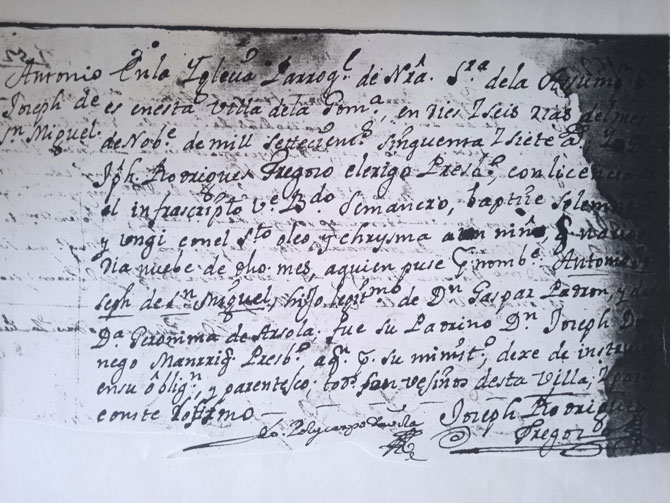 Antonio
Joseph de
Sn Miguel.
Enla Yglecia Parroql. de Nra. Sra. dela
es enesta Villa dela Goma, en dies y seis dias del mes
de Nobe. de mill settecients. sinquenta y siete as. Yo
Jph. Rodrigues Fregozo clerigo Presbo. con licencia
el infrascripto Ve. Bdo. Semanero, baptize solemn
y ungi conel Sto. oleo y chrysma a un niño q nacio
Dia nuebe de dho. mes, aquien puse p nombe. Antonio
seph de Sn. Miguel, hijo legmo. de Dn. Gaspar Padron, y de
Da. Geronima de Arsola. fue su Padrino Dn. Joseph
nego Manrriq. Presbo. a qn. p. su minist., dexe de
ensu obligon. y parentesco. todos. son vesinos desta Villa, y para
conste lo firmo.
Joseph Rodrigues
Fregozo